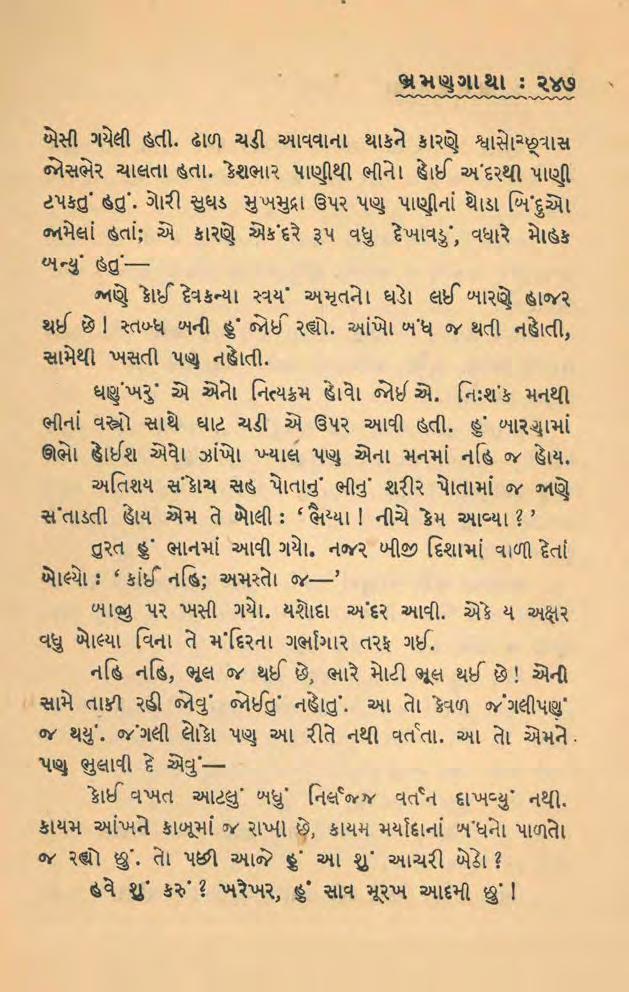 ભ્રમણગાથા : ૨૪૭
બેસી ગયેલી હતી. ઢાળ ચડી આવવાના થાકને કારણે શ્વાસોચ્છ્વાસ
જોસભેર ચાલતા હતા. કેશભાર પાણીથી ભીનો હોઈ અંદરથી પાણી
ટપકતું હતું. ગોરી સુઘડ મુખમુદ્રા ઉપર પણ પાણીનાં થોડા બિંદુઓ
જામેલાં હતાં; એ કારણે એકંદરે રૂપ વધુ દેખાવડું, વધારે મોહક
બન્યું હતું—
જાણે કોઈ દેવકન્યા સ્વયં અમૃતનો ઘડો લઈ બારણે હાજર
થઈ છે! સ્તબ્ધ બની હું જોઈ રહ્યો. આંખો બંધ જ થતી નહોતી,
સામેથી ખસતી પણ નહોતી.
ઘણુંખરું એ એનો નિત્યક્રમ હોવો જોઈએ. નિઃશંક મનથી
ભીનાં વસ્ત્રો સાથે ઘાટ ચડી એ ઉપર આવી હતી. હું બારણામાં
ઊભો હોઈશ એવો ઝાંખો ખ્યાલ પણ એના મનમાં નહિ જ હોય.
અતિશય સંકોચ સહ પોતાનું ભીનું શરીર પોતામાં જ જાણે
સંતાડતી હોય એમ તે બોલી : ‘ભૈય્યા! નીચે કેમ આવ્યા?’
તુરત હું ભાનમાં આવી ગયો. નજર બીજી દિશામાં વાળી દેતાં
બોલ્યો : ‘કાંઈ નહિ; અમસ્તો જ—’
બાજુ પર ખસી ગયો. યશોદા અંદર આવી. એકે ય અક્ષર
વધુ બોલ્યા વિના તે મંદિરના ગર્ભાગાર તરફ ગઈ.
નહિ નહિ, ભૂલ જ થઈ છે, ભારે મોટી ભૂલ થઈ છે! એની
સામે તાકી રહી જોવું જોઈતું નહોતું. આ તો કેવળ જંગલીપણું
જ થયું. જંગલી લોકો પણ આ રીતે નથી વર્તતા. આ તો એમને
પણ ભુલાવી દે એવું—
કોઈ વખત આટલું બધું નિર્લજ્જ વર્તન દાખવ્યું નથી.
કાયમ આંખને કાબૂમાં જ રાખી છે, કાયમ મર્યાદાનાં બંધનો પાળતો
જ રહ્યો છું. તો પછી આજે હું આ શું આચરી બેઠો?
હવે શું કરું? ખરેખર, હું સાવ મૂરખ આદમી છું!